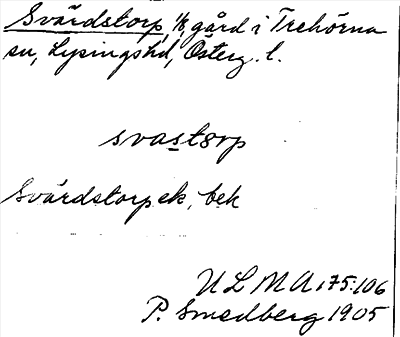 Svärdstorp, 1/8, gård i Trehörna
sn, Lysingshd, Österg. l.
svastorp
Svärdstorp ek, bek
ULMA 175:106
P. Smedberg 1905